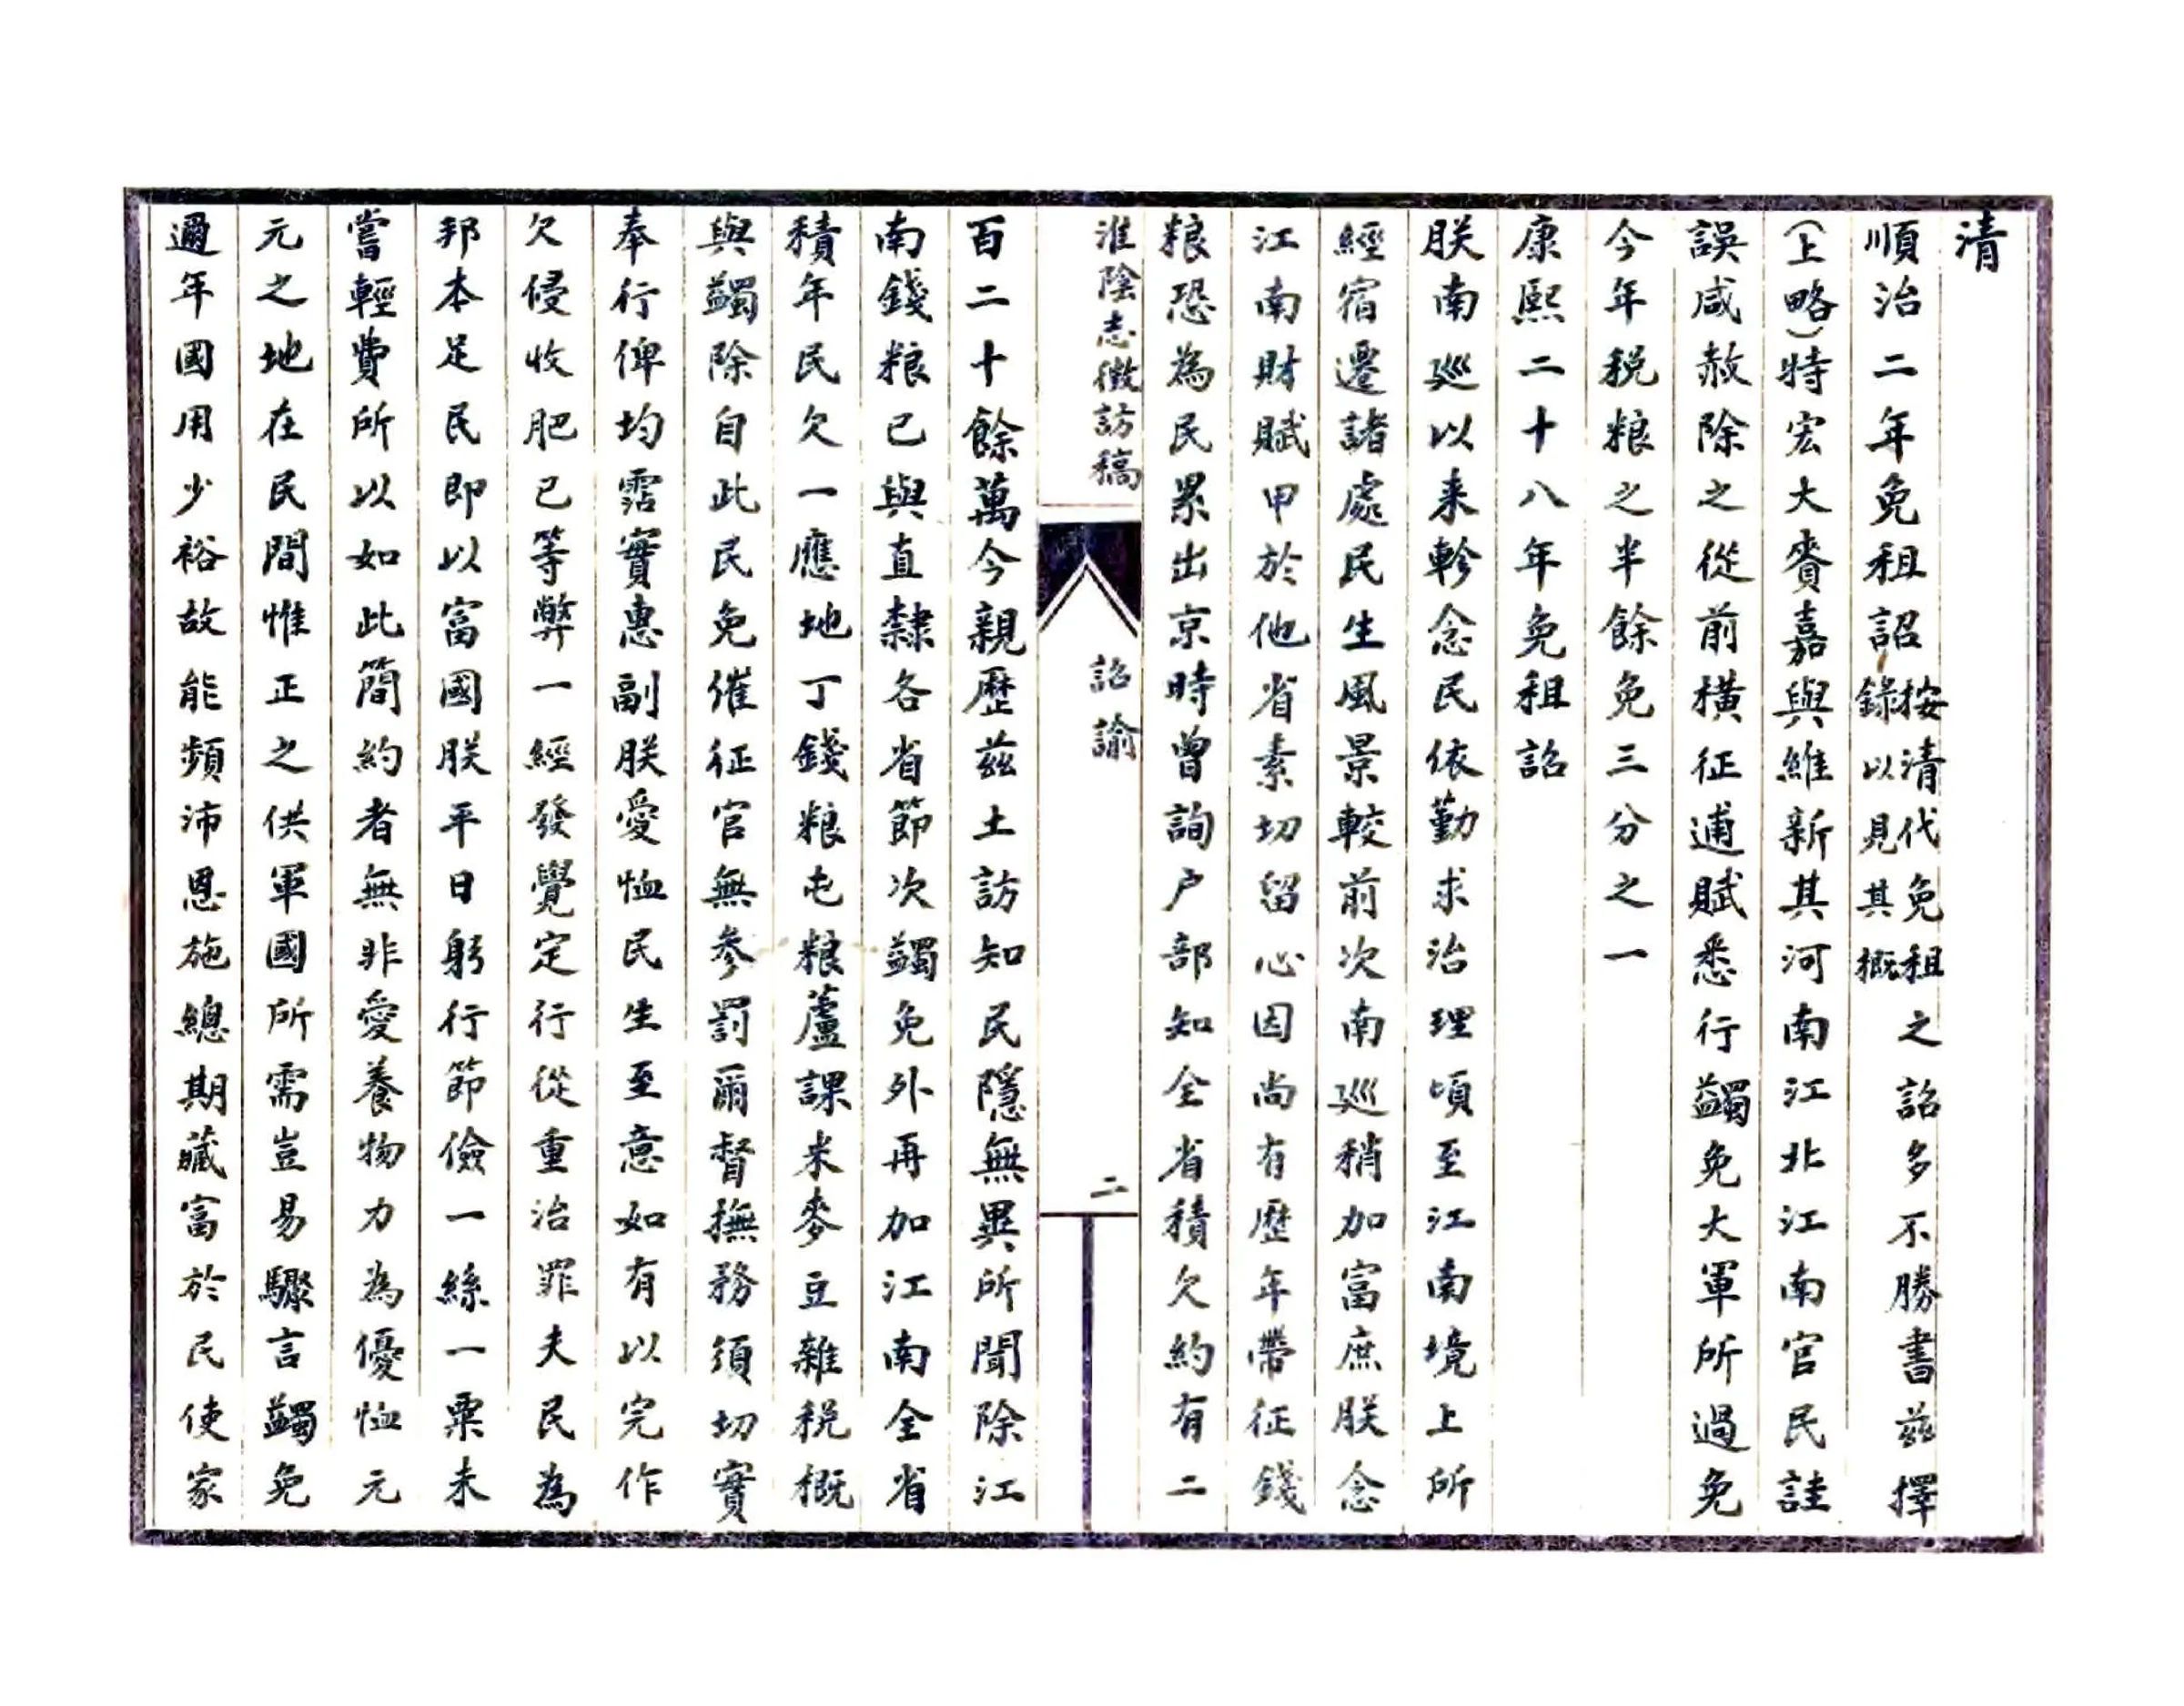 清
順治二年免租詔
按清代免租之詔多不勝書茲擇
錄以見其概
(上略)特宏大賚嘉與維新其河南江北江南官民詿
誤咸赦除之從前橫征逋賦悉行蠲免大軍所過免
今年税粮之半餘免三分之一
康熙二十八年免租詔
朕南巡以来軫念民依勤求治理頃至江南境上所
經宿遷諸處民生風景較前次南巡稍加富庶朕念
江南財賦甲於他省素切留心因尚有歷年帶征錢
粮恐為民累出京時曾詢户部知全省積欠約有二
淮陰志徵訪稿
詔諭
二
百二十餘萬今親歷茲土訪知民隱無異所聞除江
南錢粮已與直隸各省節次蠲免外再加江南全省
積年民欠一應地丁錢粮屯粮蘆課米麥豆雜税概
與蠲除自此民免催征官無參罰爾督撫務須切實
奉行俾均霑實惠副朕愛恤民生至意如有以完作
欠侵收肥已等弊一經發覺定行從重治罪夫民為
邦本足民即以富國朕平日躬行節儉一絲一粟未
嘗輕費所以如此簡約者無非愛養物力為優恤元
元之地在民間惟正之供軍國所需豈易驟言蠲免
邇年國用少裕故能頻沛恩施總期藏富於民使家